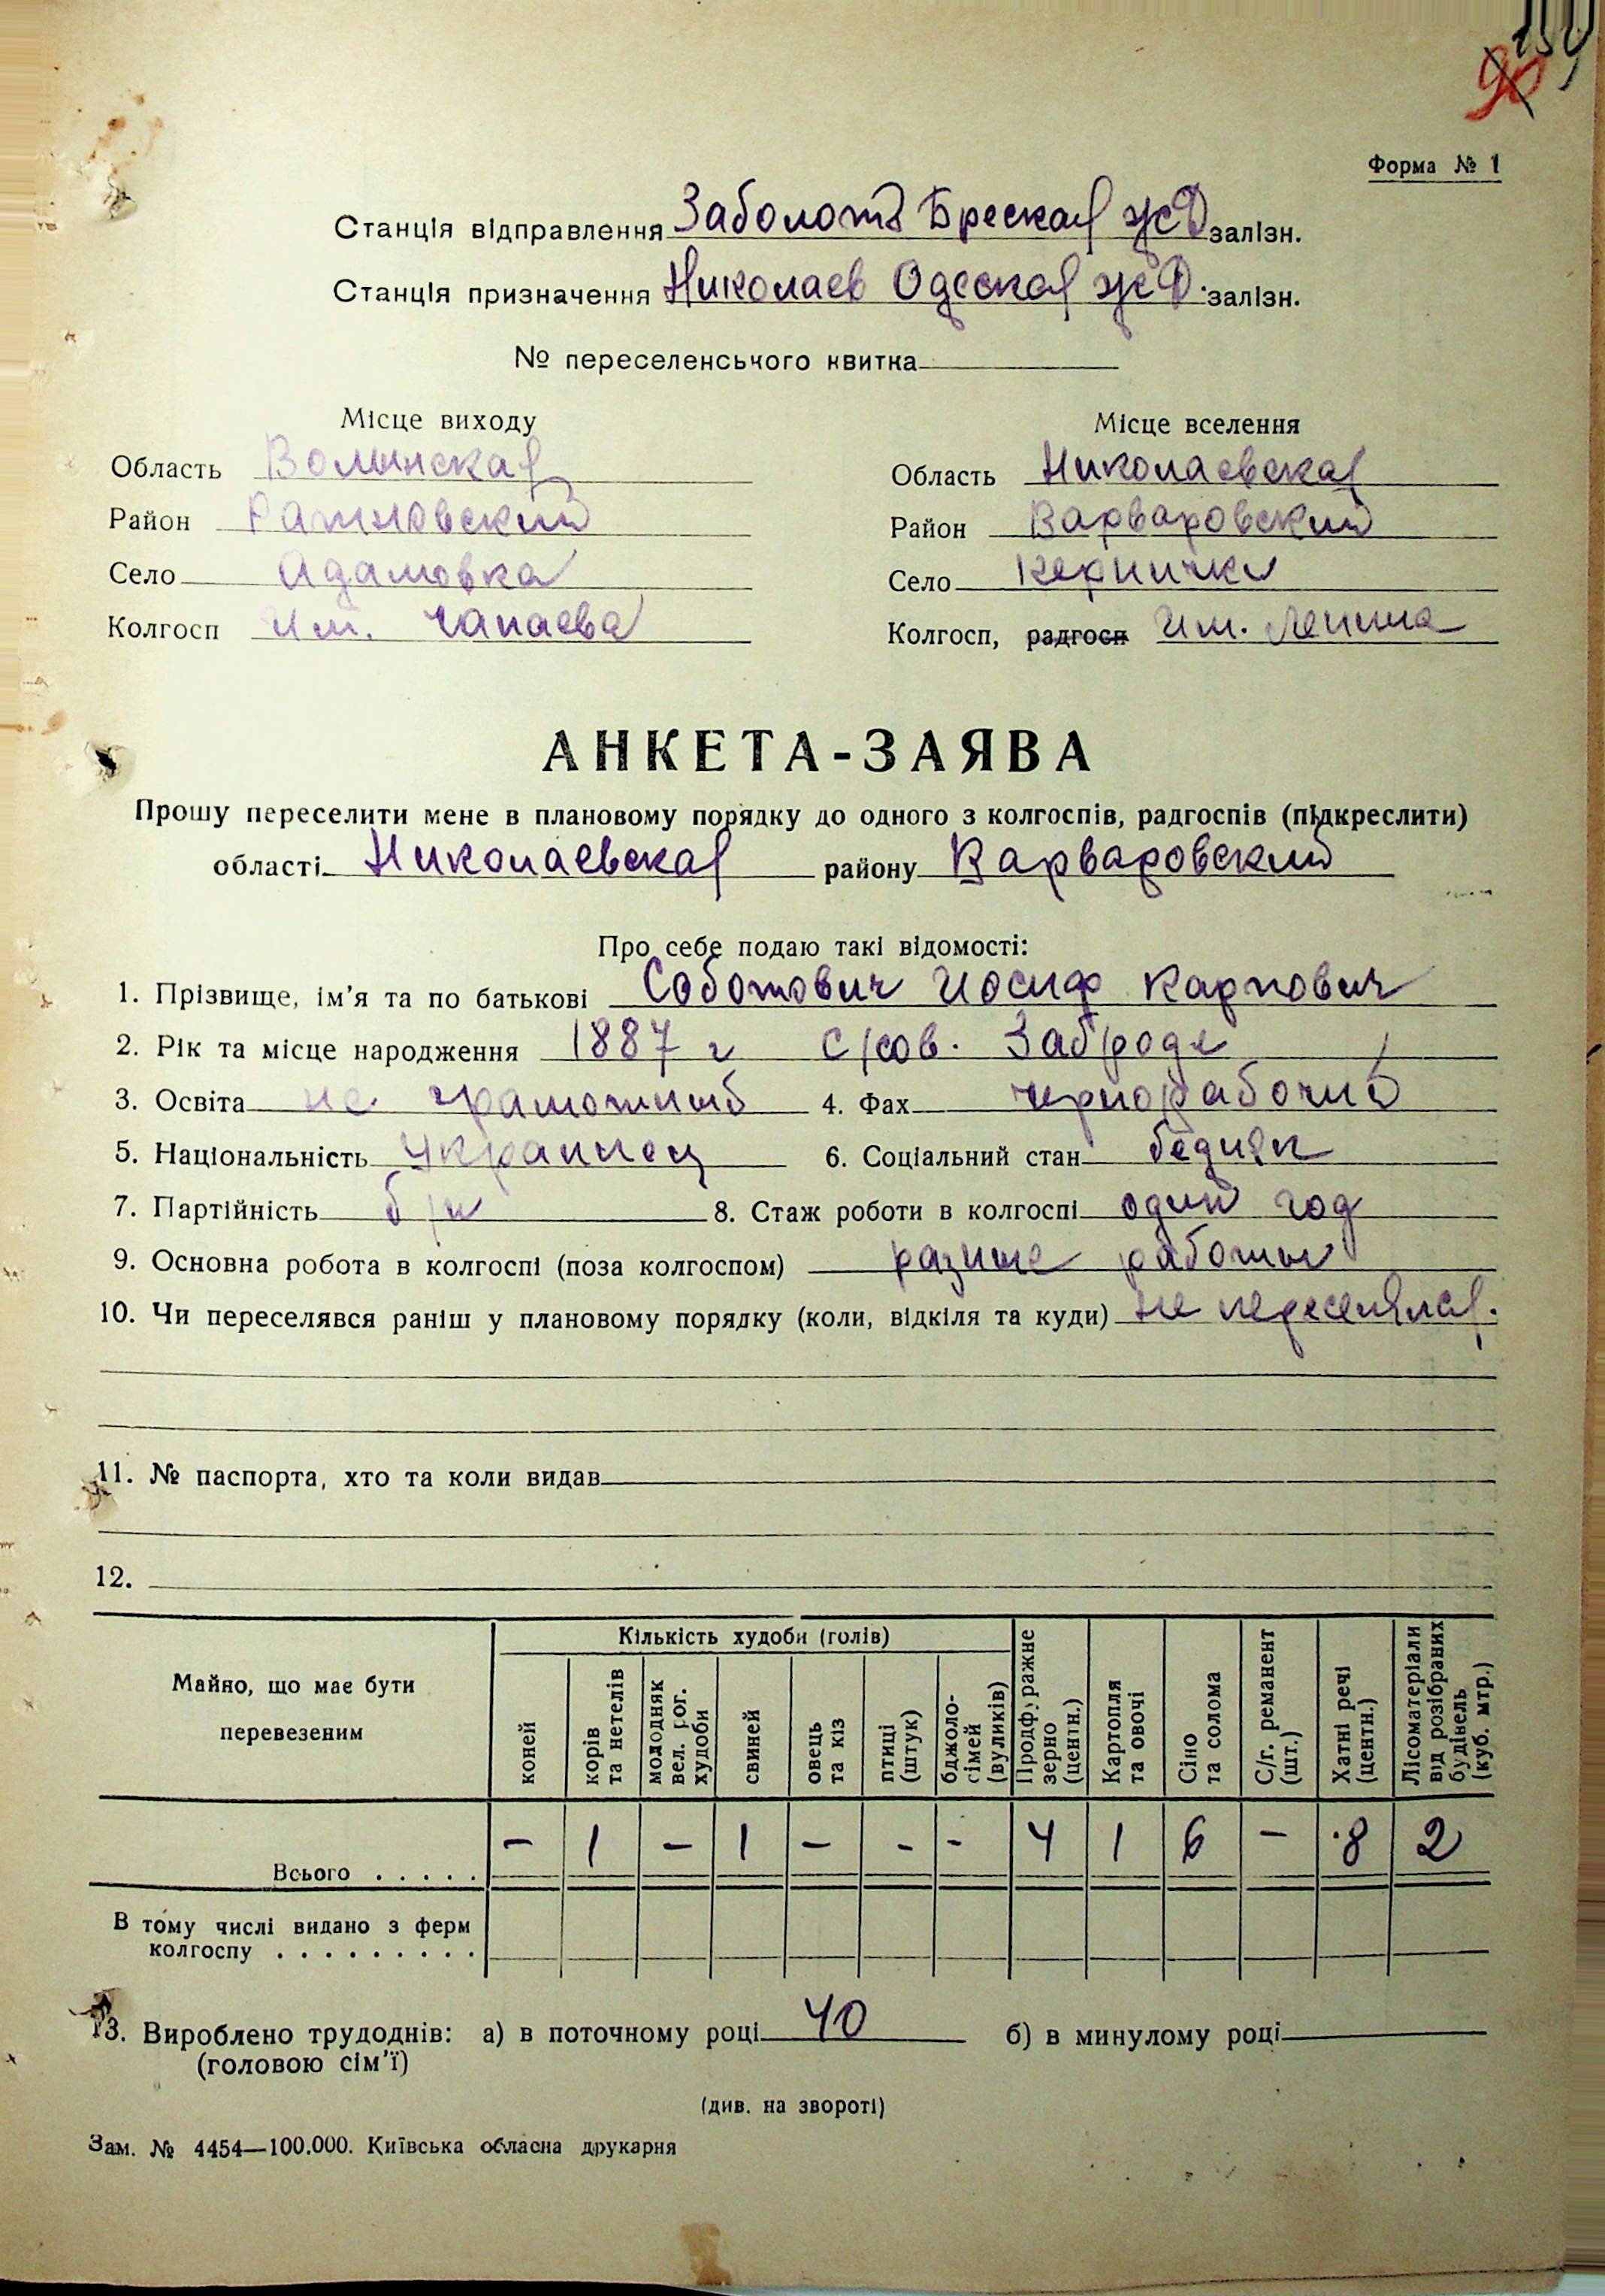 90
Форма № 1
Станція відправлення Заболотв Бреская ЖД залізн.
Станція призначення Николаев Одеская ЖД залізн.
№ переселенського квитка
Місце виходу Місце вселення
Область Волынская Область Николаевская
Район Ратновский Район Варваровский
Село Адамовка Село Кернички
Колгосп Им. Чапаева Колгосп, радгосп Им. Ленина
АНКЕТА-ЗАЯВА
Прошу переселити мене в плановому порядку до одного з колгоспів, радгоспів (підкреслити)
області Николаевская району Варваровский
Про себе подаю такі відомості:
1. Прізвище, ім’я та по батькові Соботович Иосиф Карпович
2. Рік та місце народження 1887 г с/сов. Забродя
3. Освіта не грамотный 4. Фах чернорабочий
5. Національність Украинец 6. Соціальний стан бедняк
7. Партійність б/п 8. Стаж роботи в колгоспі один год
9. Основна робота в колгоспі (поза колгоспом) разные работы
10. Чи переселявся раніш у плановому порядку (коли, відкіля та куди) не переселялся.
11. № паспорта, хто та коли видав
12.
Майно, що має бути перевезеним
Кількість худоби (голів)
коней
корів та нетелів
молодняк вел. рог. худоби
свиней
овець та кіз
птиці (штук)
бджоло-сімей (вуликів)
Продфуражне зерно (центн.)
Картопля та овочі
Сіно та солома
С/г. реманент (шт.)
Хатні речі (центн.)
Лісоматеріали від розібраних будінель (куб. мтр.)
Всього . . . . . – 1 – 1 – - - 4 1 6 – 8 2
В тому числі видано з ферм
колгоспу . . . . . . . . .
13. Вироблено трудоднів: а) в поточному році 40 б) в минулому році
(головою сім’ї)
(див. на звороті)
Зам. № 4454—100.000. Київська обласна друкарня